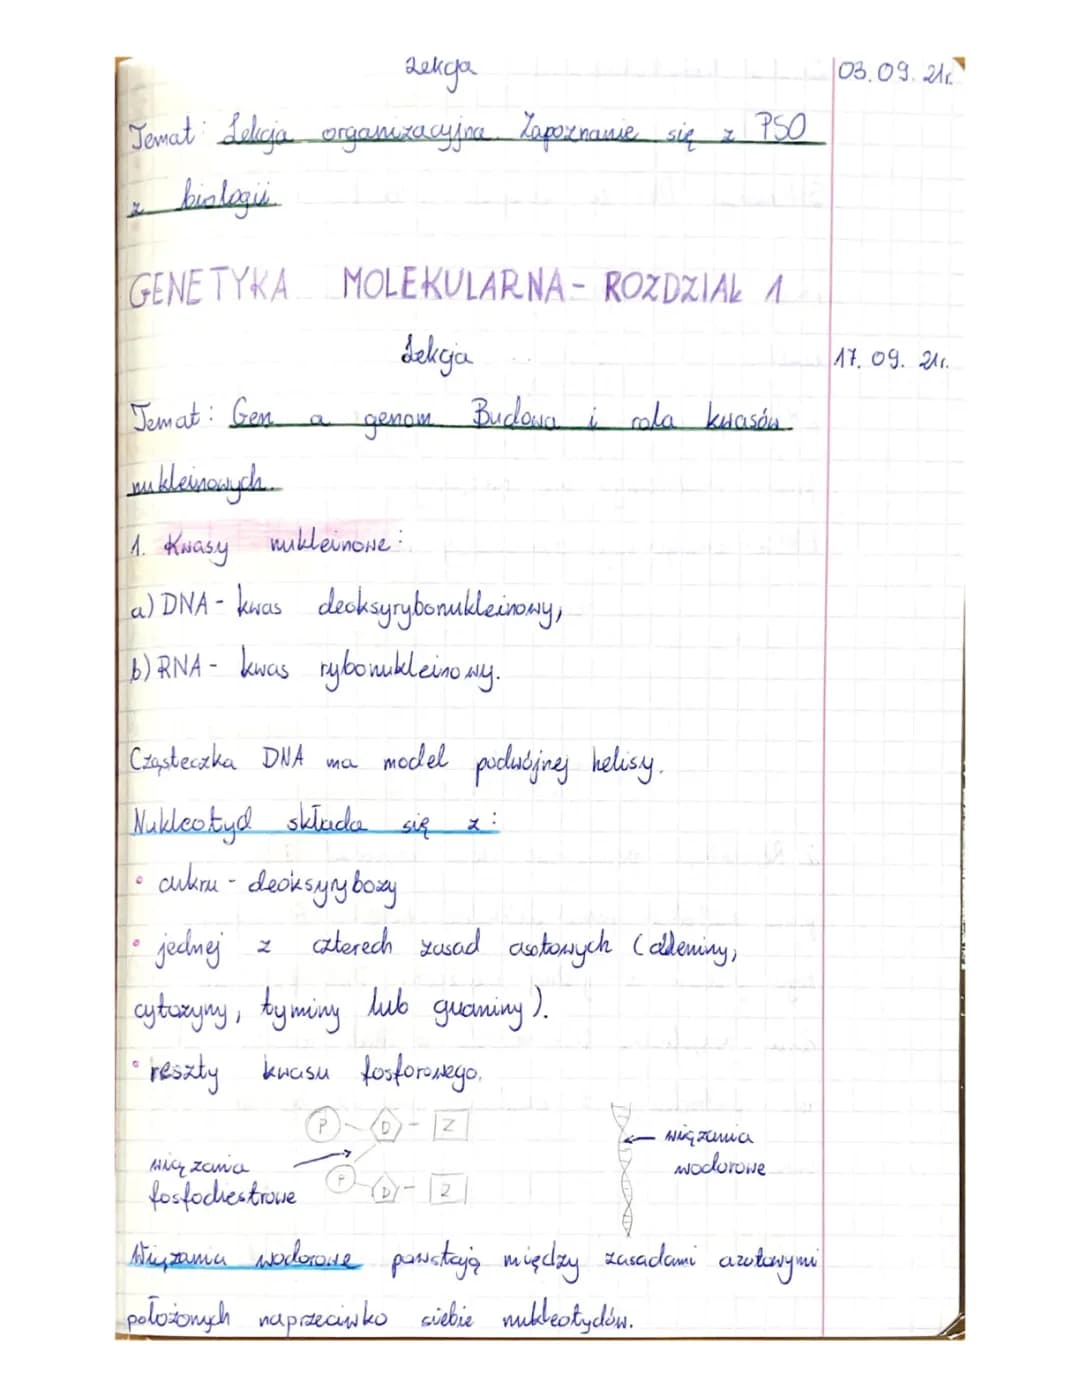 Lekcja 03.09.21r.
Temat: Lekcja organizacyjna. Zapoznanie się z PSO
z biologii.
GENETYKA MOLEKULARNA - ROZDZIAŁ 1
Lekcja 17.09.21r.
Temat: Gen a genom. Budowa i rola kwasów
nukleinowych.
1. Kwasy nukleinowe:
a) DNA - kwas deoksyrybonukleinowy,
b) RNA - kwas rybonukleinowy.
Cząsteczka DNA ma model podwójnej helisy.
Nukleotyd składa się z:
• cukru - deoksyrybozy
• jednej z czterech zasad asotowych (adeniny,
cytozyny, tyminy lub guaniny).
• reszty kwasu fosforowego.
P - D - Z
wiązania
fosfodiestrowe
P - D - Z
wiązania
wodorowe
Wiązania wodorowe powstają między zasadami azotowymi
położonych naprzeciwko siebie nukleotydów.